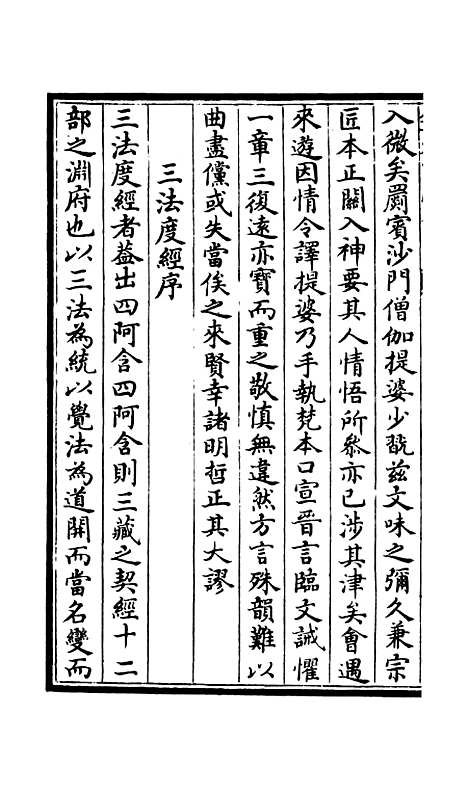 入微矣罽賓沙門僧伽提婆少翫兹文味之彌久兼宗
匠本正關入神要其人情悟所叅亦已涉其津矣會遇
來遊因情令譯提婆乃手執梵本口宣晉言臨文誡懼
一章三復遠亦寶而重之敬慎無違然方言殊韻難以
曲盡儻或失當俟之來賢幸諸明哲正其大謬
三法度經序
三法度經者葢出四阿含四阿含則三藏之契經十二
部之淵府也以三法為統以覺法為道開而當名變而